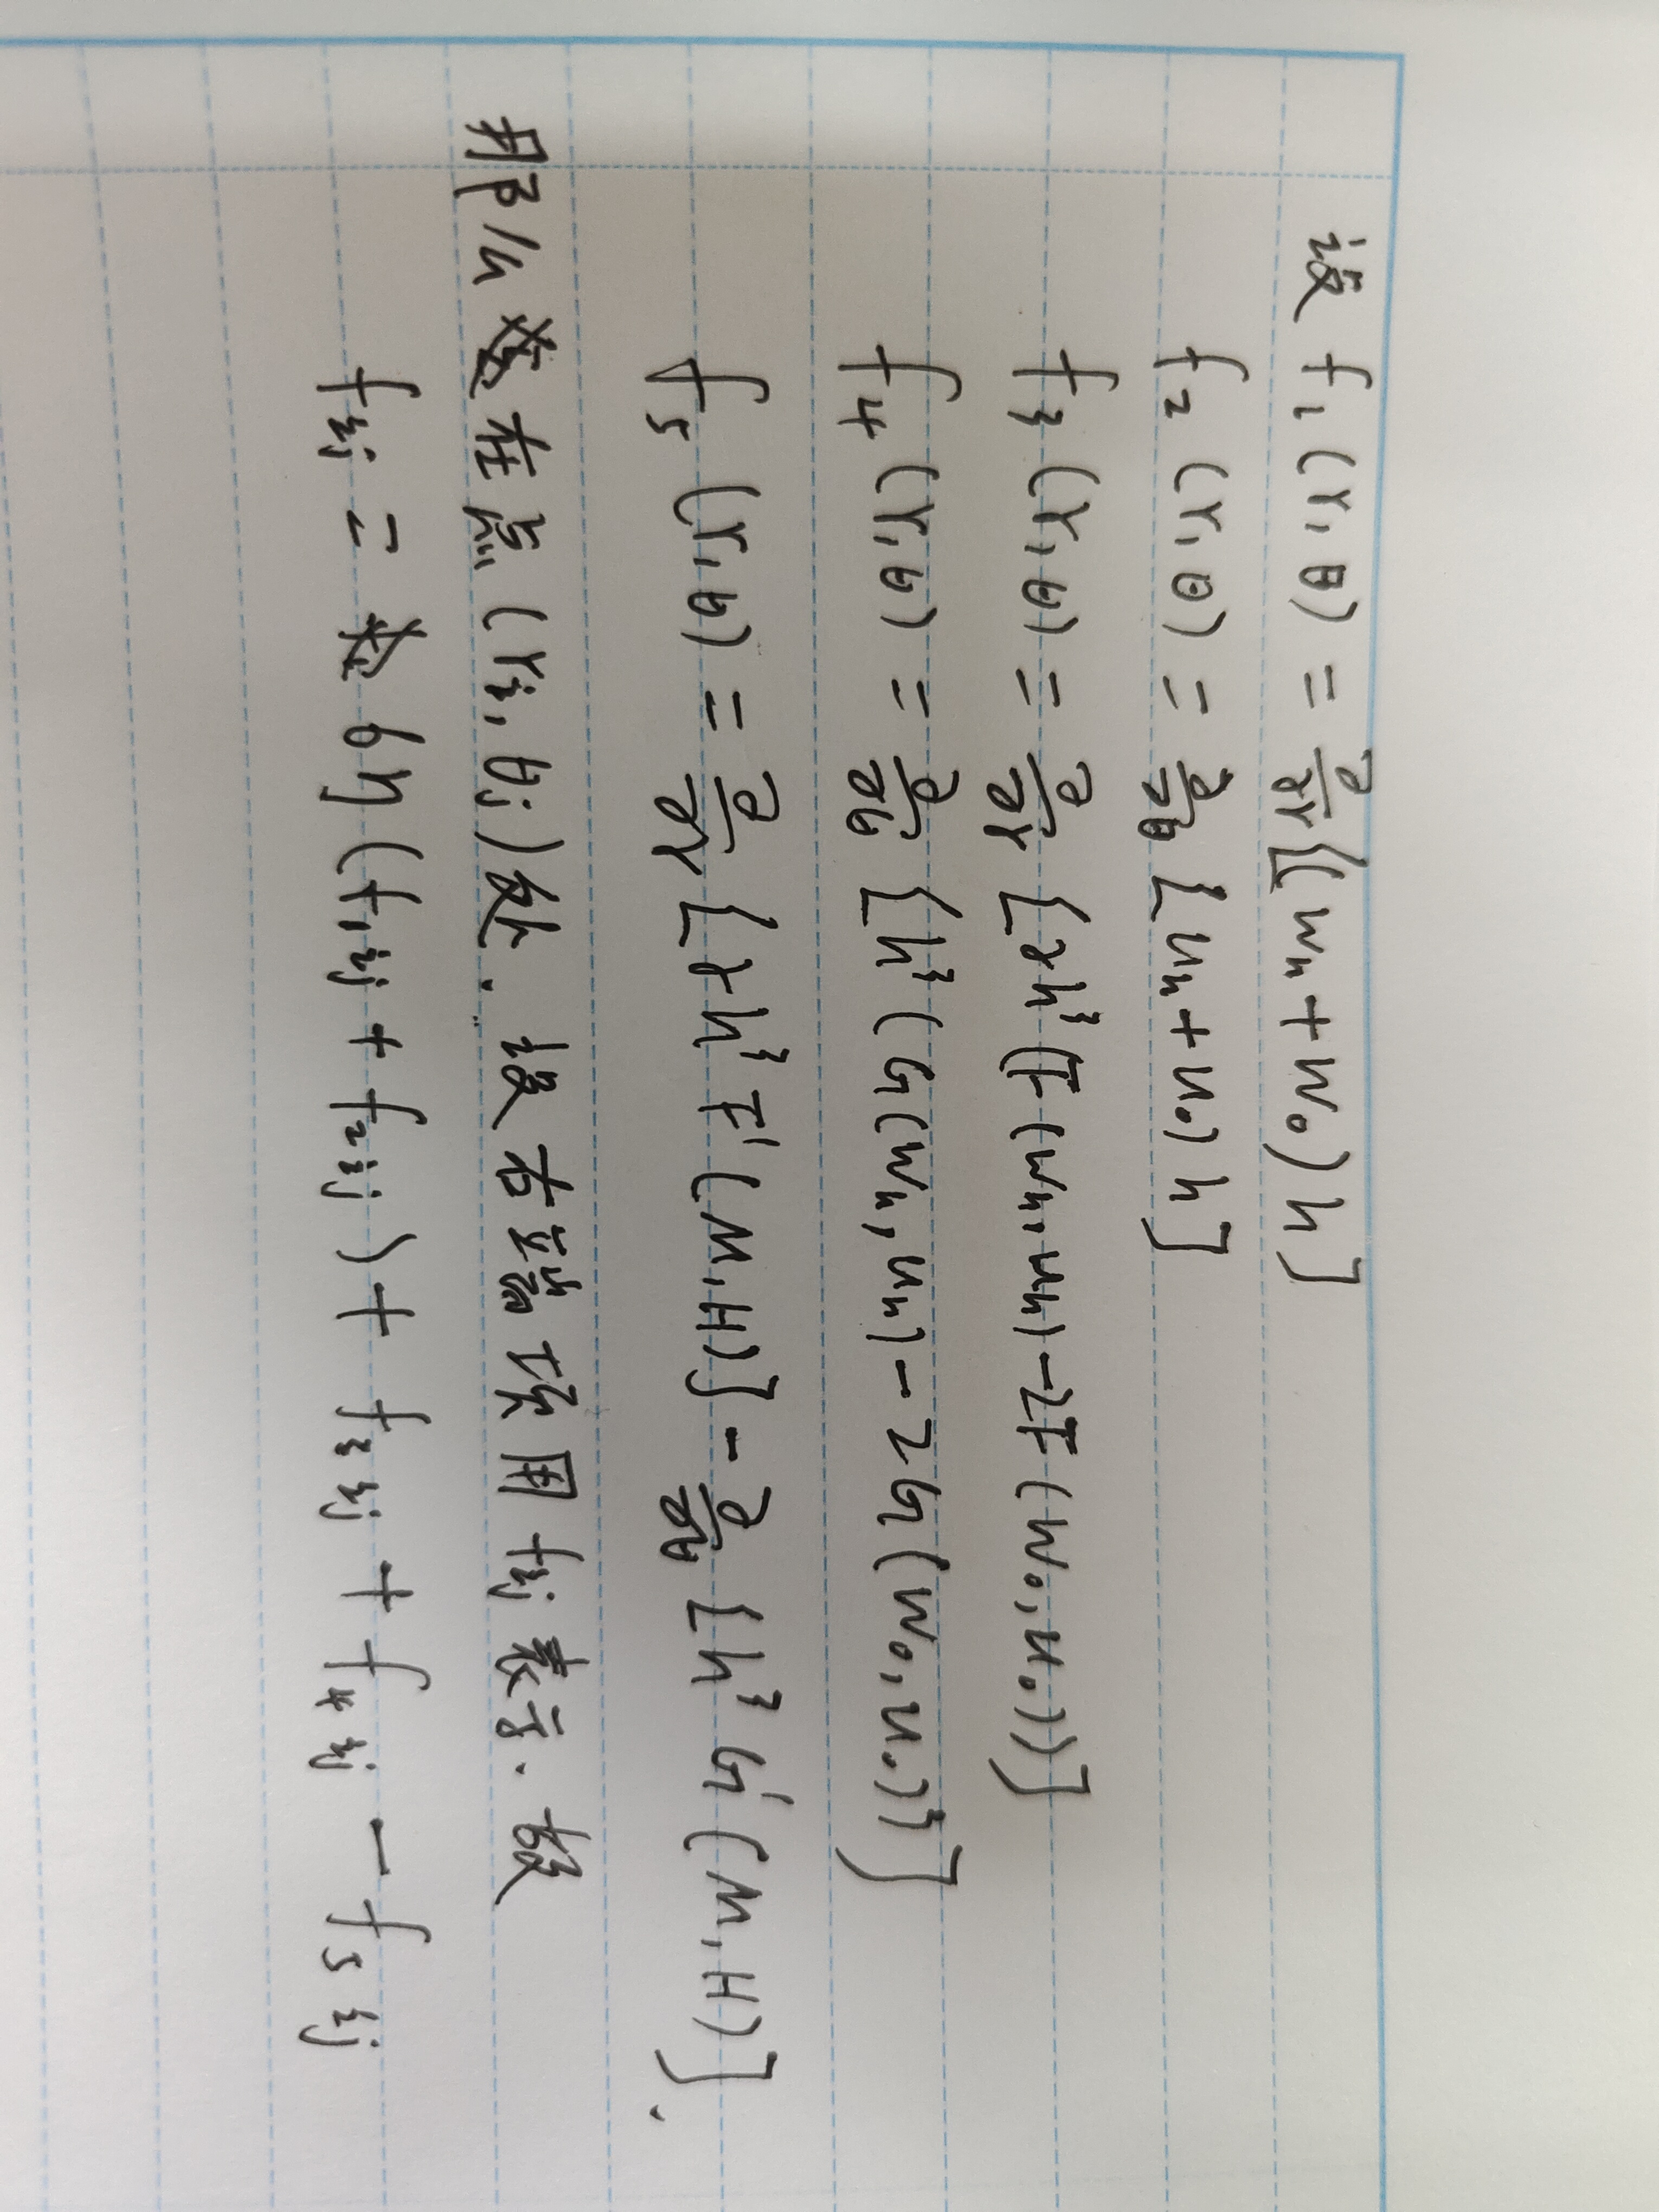 设 f₁(r,θ) = ∂/∂r [(wₕ+w₀)h]
f₂(r,θ) = ∂/∂θ [uₕ+u₀)h]
f₃(r,θ) = ∂/∂r [rh³(F(wₕ,uₕ)-2F(w₀,u₀))]
f₄(r,θ) = ∂/∂θ [h³(G(wₕ,uₕ)-2G(w₀,u₀))]
f₅(r,θ) = ∂/∂r [rh³F'(M,H)] - ∂/∂θ [h³G'(M,H)].
那么在点(rᵢ,θⱼ)处.设右端项用fᵢⱼ表示.故
fᵢⱼ = 6η(f₁ᵢⱼ+f₂ᵢⱼ)+f₃ᵢⱼ+f₄ᵢⱼ-f₅ᵢⱼ